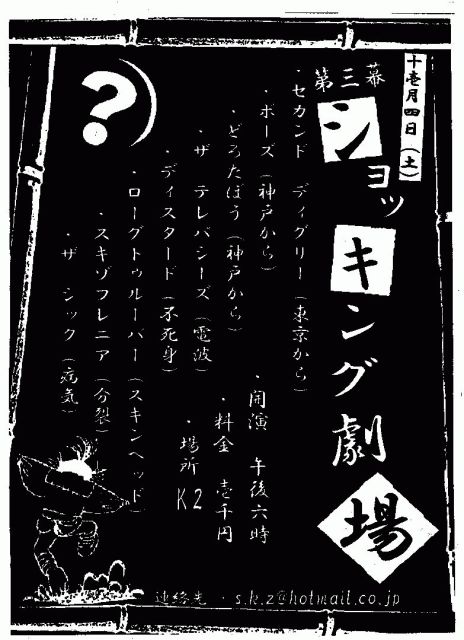 十壱月四日(土)
第三幕
ショッキング劇場
・セカンド ディグリー(東京から)
・ボーズ(神戸から)
・どろたぼう(神戸から)
・ザ テレパシーズ(電波)
・ディスタード(不死身)
・ローグトゥルーパー(スキンヘッド)
・スキゾフレニア(分裂)
・ザ シック(病気)
?
・開演 午後六時
・料金 壱千円
・場所 K2
連絡先 ・ s.k.z@hotmail.co.jp